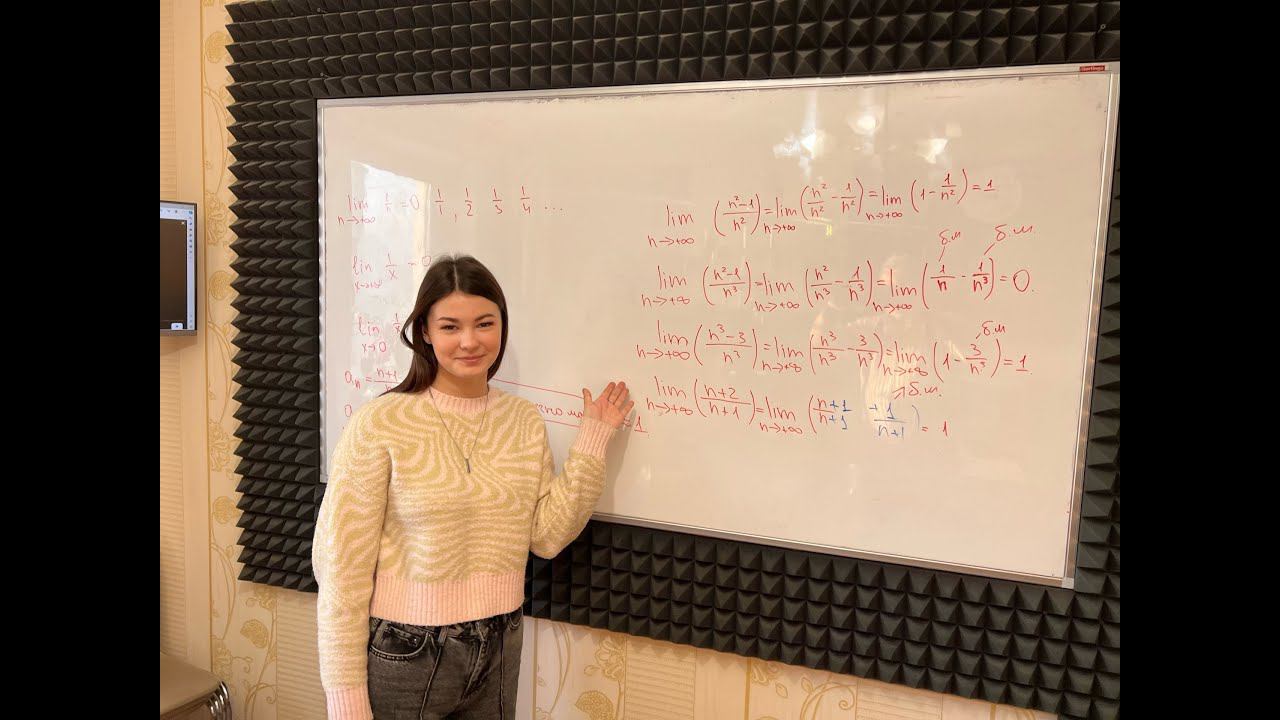 lim n→+∞ 1/n = 0 1/1, 1/2 1/3 1/4 ...
lim x→+∞ 1/x = 0
lim x→0
aₙ = n+1
= 1.
lim n→+∞ (n²-1/n²) = lim n→+∞ (n²/n² - 1/n²) = lim n→+∞ (1 - 1/n²) = 1
б.м б.м.
lim n→+∞ (n²-1/n³) = lim n→+∞ (n²/n³ - 1/n³) = lim n→+∞ (1/n - 1/n³) = 0.
б.м
lim n→+∞ (n³-3/n³) = lim n→+∞ (n³/n³ - 3/n³) = lim n→+∞ (1 - 3/n³) = 1.
б.м.
lim n→+∞ (n+2/n+1) = lim n→+∞ (n+1/n+1 + 1/n+1) = 1